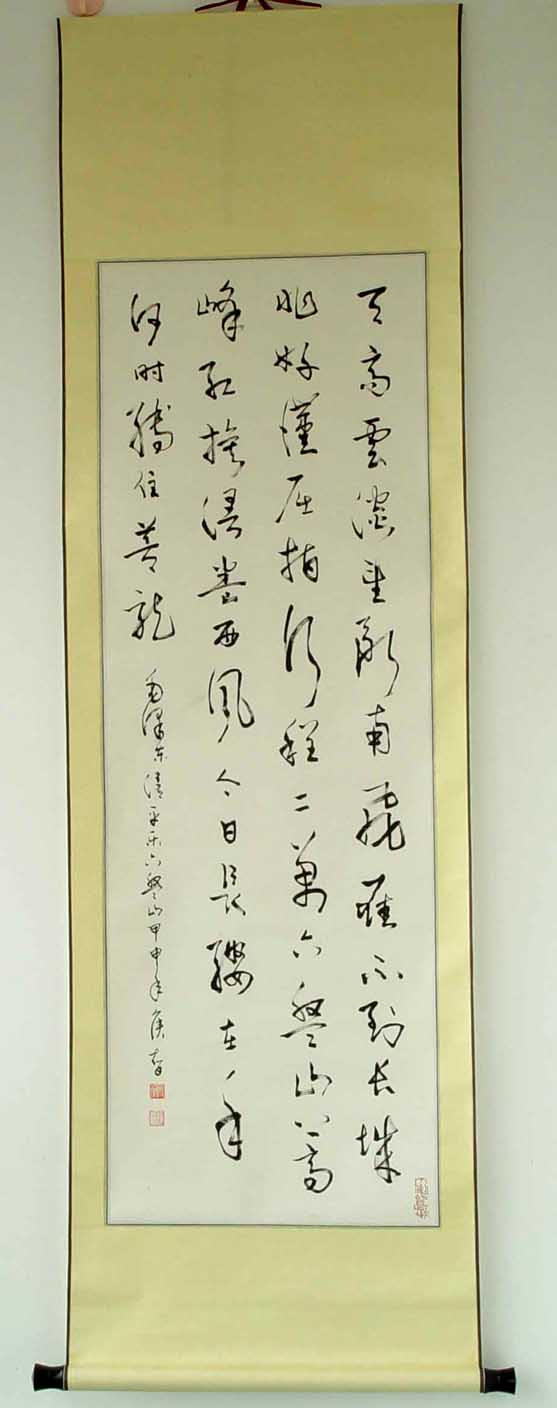 天高雲淡望断南飛雁不到长城
非好漢屈指行程二萬六盤山上高
峰红旗漫卷西風今日長纓在手
何时縛住苍龍
毛泽东清平乐六盤山甲申年